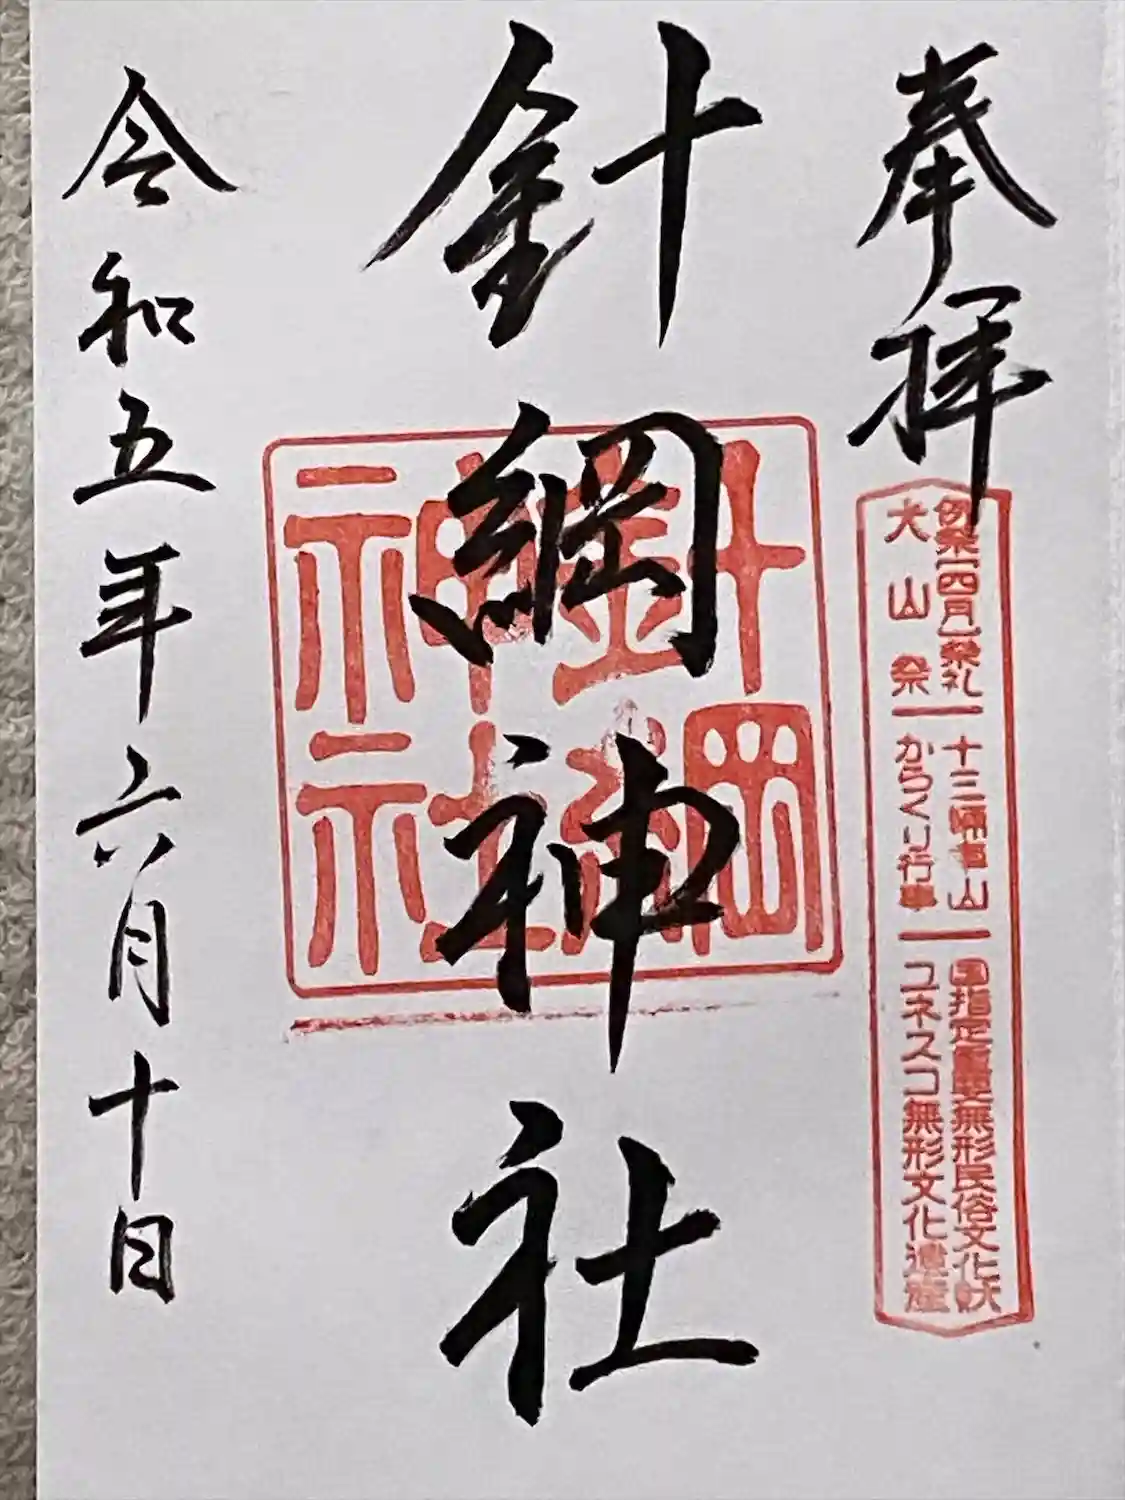 奉拝
例祭【四月】祭礼ー十三輌車山ー国指定重要無形民俗文化財
犬山祭ーからくり行事ーユネスコ無形文化遺産
針綱神社
針綱
神社
令和五年六月十日